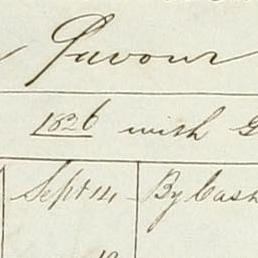 Favour
1826 with G
Sept 14 By Cash